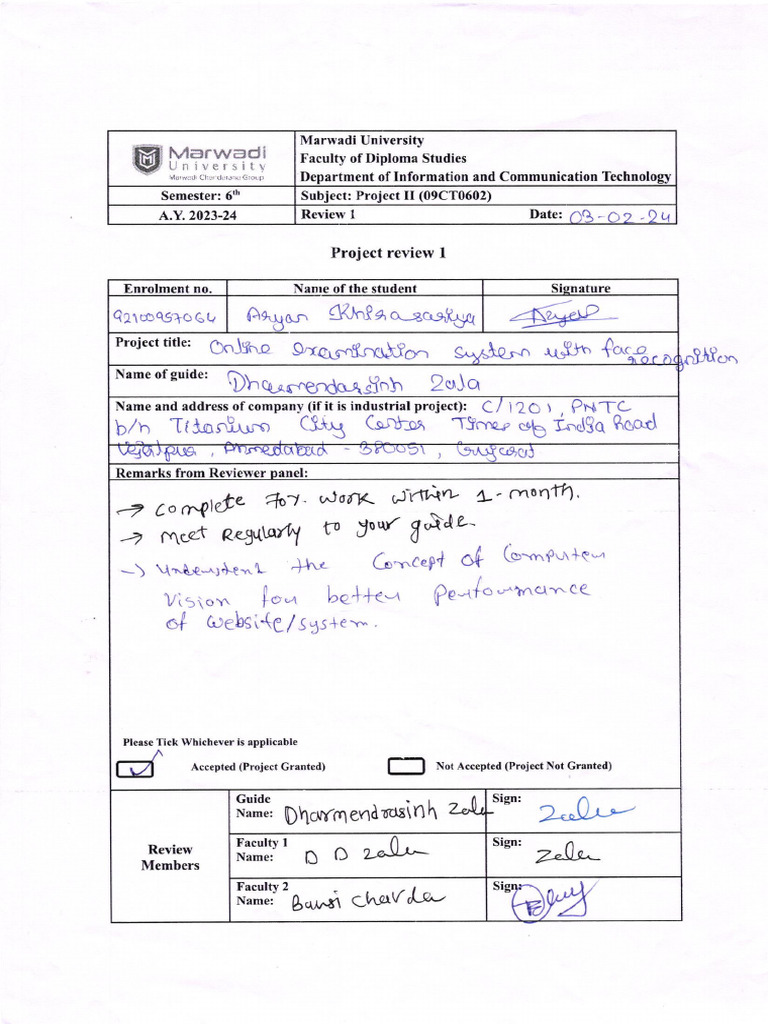 Marwadi University
Marwadi Chandarana Group
Marwadi University
Faculty of Diploma Studies
Department of Information and Communication Technology
Semester: 6th Subject: Project II (09CT0602)
A.Y. 2023-24 Review 1 Date: 03-02-24
Project review 1
Enrolment no. Name of the student Signature
92100957064 Aryan Khirasariya
Project title: Online examination system with face recognition
Name of guide: Dharmendarsinh Zala
Name and address of company (if it is industrial project): C/1201, PNTC
b/h Titanium City Center Times of India Road
Vejalpur, Ahmedabad - 380051, Gujarat
Remarks from Reviewer panel:
→ Complete 70% work within 1-month.
→ Meet Regularly to your guide.
→ the Concept of Computer
Vision for better Performance
of website/system.
Please Tick Whichever is applicable
Accepted (Project Granted) Not Accepted (Project Not Granted)
Review Members
Guide Name: Dharmendrasinh Zala Sign: Zala
Faculty 1 Name: D D Zala Sign: Zala
Faculty 2 Name: Bansi Chavda Sign: